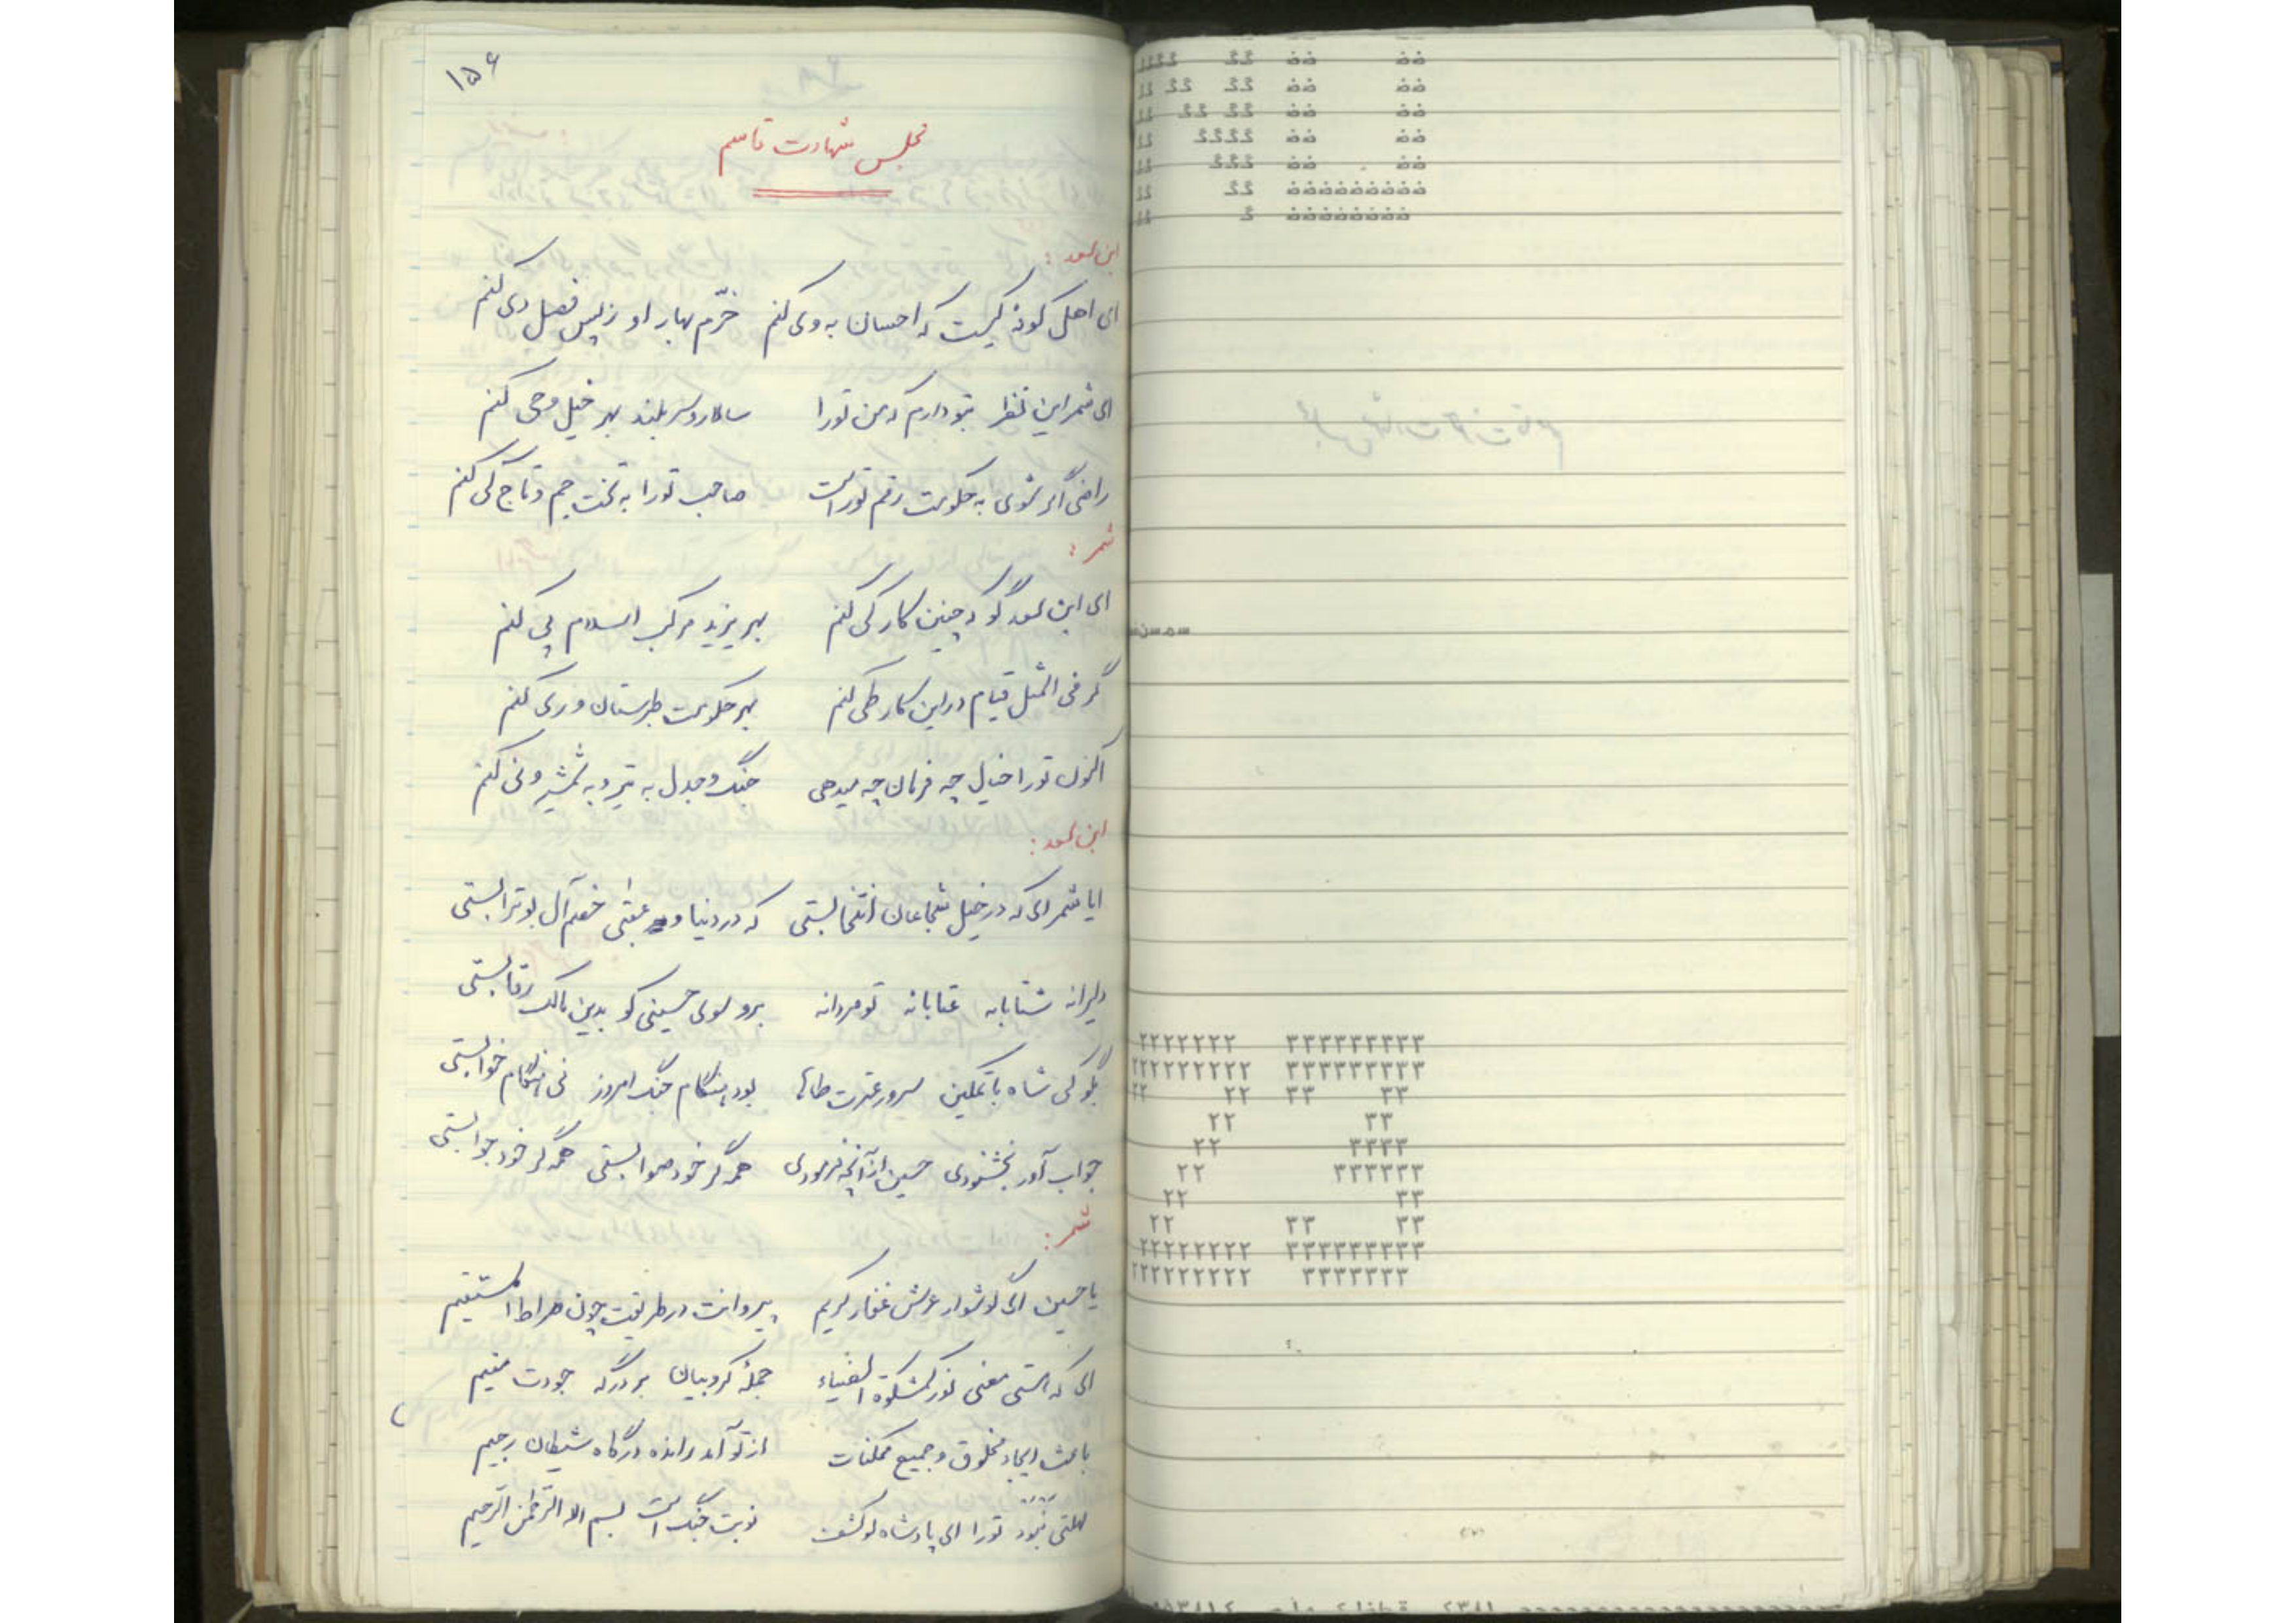 ۱۵۶
مجلس شهادت قاسم
ابن سعد :
ای اهل کوفه کیست که احسان به وی کنم خرّم بهار او ز پس فصل دی کنم
ای شمر این نظر بتو دارم که من تو را سالار و سر بلند بهر خیل و حی کنم
راضی اگر شوی به حکومت رقم تو راست صاحب تو را به تخت جم و تاج کی کنم
شمر :
ای ابن سعد گو که چنین کار کی کنم بهر یزید مرکب اسلام پی کنم
گر فی المثل قیام در این کار طی کنم بهر حکومت طبرستان و ری کنم
اکنون تو را خیال چه فرمان چه میدهی جنگ و جدل به تیر و به شمشیر و نی کنم
ابن سعد :
ایا شمر ای که در خیل شجاعان انتخابستی که در دنیا و عقبی خصم آل بوترابستی
دلیرانه شتابانه عتابانه تو مردانه برو سوی حسینی کو بدین مالک رقابستی
بگو کی شاه با تمکین سرور عترت طاها بود هنگام جنگ امروز نی هنگام خوابستی
جواب آور بخشنودی حسین از آنچه فرمودی همه گر خود صوابستی همه گر خود جوابستی
شمر :
یا حسین ای گوشوار عرش غفار کریم پیروانت در طریقت چون صراط المستقیم
ای که هستی معنی نور کمشکوة الضیاء جمله کروبیان بر درگه جودت مقیم
باعث ایجاد مخلوق و جمیع ممکنات از تو آمد رانده درگاه شیطان رجیم
مهلتی نبود تو را ای پادشاه لو کشف نوبت جنگ است بسم الله الرّحمن الرّحیم